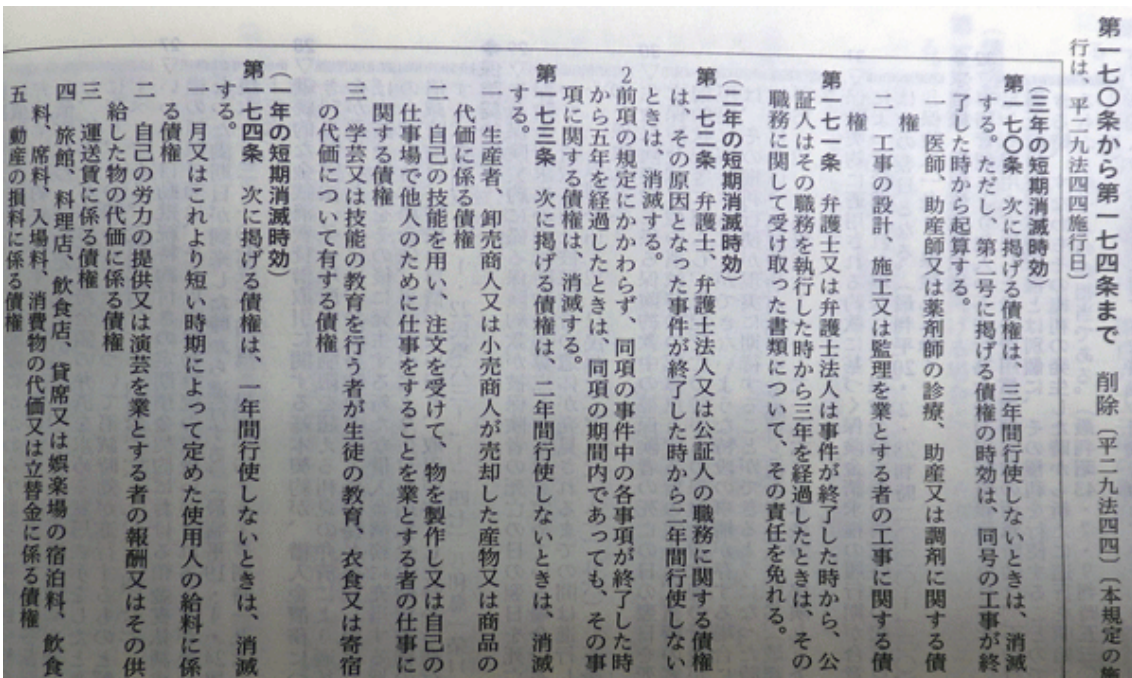 第一七〇条から第一七四条まで　削除〔平二九法四四〕〔本規定の施
行は、平二九法四四施行日〕
（三年の短期消滅時効）
第一七〇条　次に掲げる債権は、三年間行使しないときは、消滅
する。ただし、第二号に掲げる債権の時効は、同号の工事が終
了した時から起算する。
一　医師、助産師又は薬剤師の診療、助産又は調剤に関する債
権
二　工事の設計、施工又は監理を業とする者の工事に関する債
権
第一七一条　弁護士又は弁護士法人は事件が終了した時から、公
証人はその職務を執行した時から三年を経過したときは、その
職務に関して受け取った書類について、その責任を免れる。
（二年の短期消滅時効）
第一七二条　弁護士、弁護士法人又は公証人の職務に関する債権
は、その原因となった事件が終了した時から二年間行使しない
ときは、消滅する。
2 前項の規定にかかわらず、同項の事件中の各事項が終了した時
から五年を経過したときは、同項の期間内であっても、その事
項に関する債権は、消滅する。
第一七三条　次に掲げる債権は、二年間行使しないときは、消滅
する。
一　生産者、卸売商人又は小売商人が売却した産物又は商品の
代価に係る債権
二　自己の技能を用い、注文を受けて、物を製作し又は自己の
仕事場で他人のために仕事をすることを業とする者の仕事に
関する債権
三　学芸又は技能の教育を行う者が生徒の教育、衣食又は寄宿
の代価について有する債権
（一年の短期消滅時効）
第一七四条　次に掲げる債権は、一年間行使しないときは、消滅
する。
一　月又はこれより短い時期によって定めた使用人の給料に係
る債権
二　自己の労力の提供又は演芸を業とする者の報酬又はその供
給した物の代価に係る債権
三　運送賃に係る債権
四　旅館、料理店、飲食店、貸席又は娯楽場の宿泊料、飲食
料、席料、入場料、消費物の代価又は立替金に係る債権
五　動産の損料に係る債権